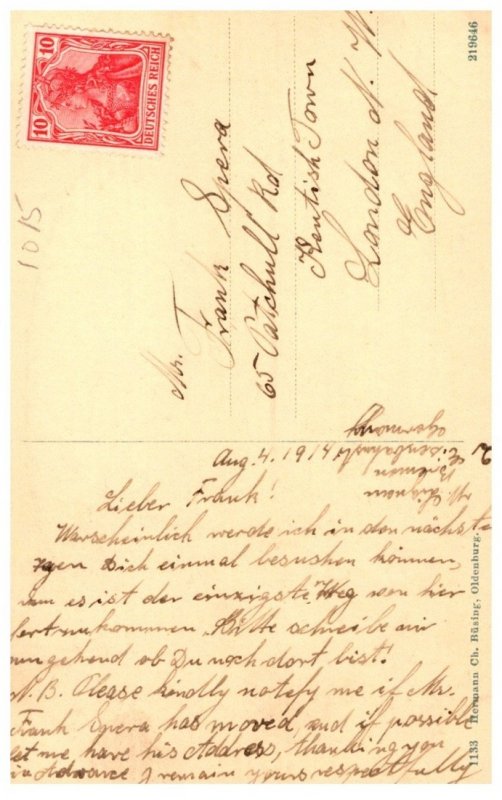 10
10
DEUTSCHES REICH
1015
219646
Mr. Frank Spera
65 Patchull Rd
Kentish Town
London N. W.
England
Germany
Aug. 4. 1914
Lieber Frank!
Warscheinlich werde ich in den nächste
dich einmal besushen können,
es ist der einzigste Weg von hier
Bitte schreibe mir
umgehend ob Du noch dort bist.
N. B. Please kindly notefy me if Mr.
Frank Spera has moved and if possible
let me have his Address, thanking you
in Advance I remain yours respectfully
1133 Hermann Ch. Büsing, Oldenburg.